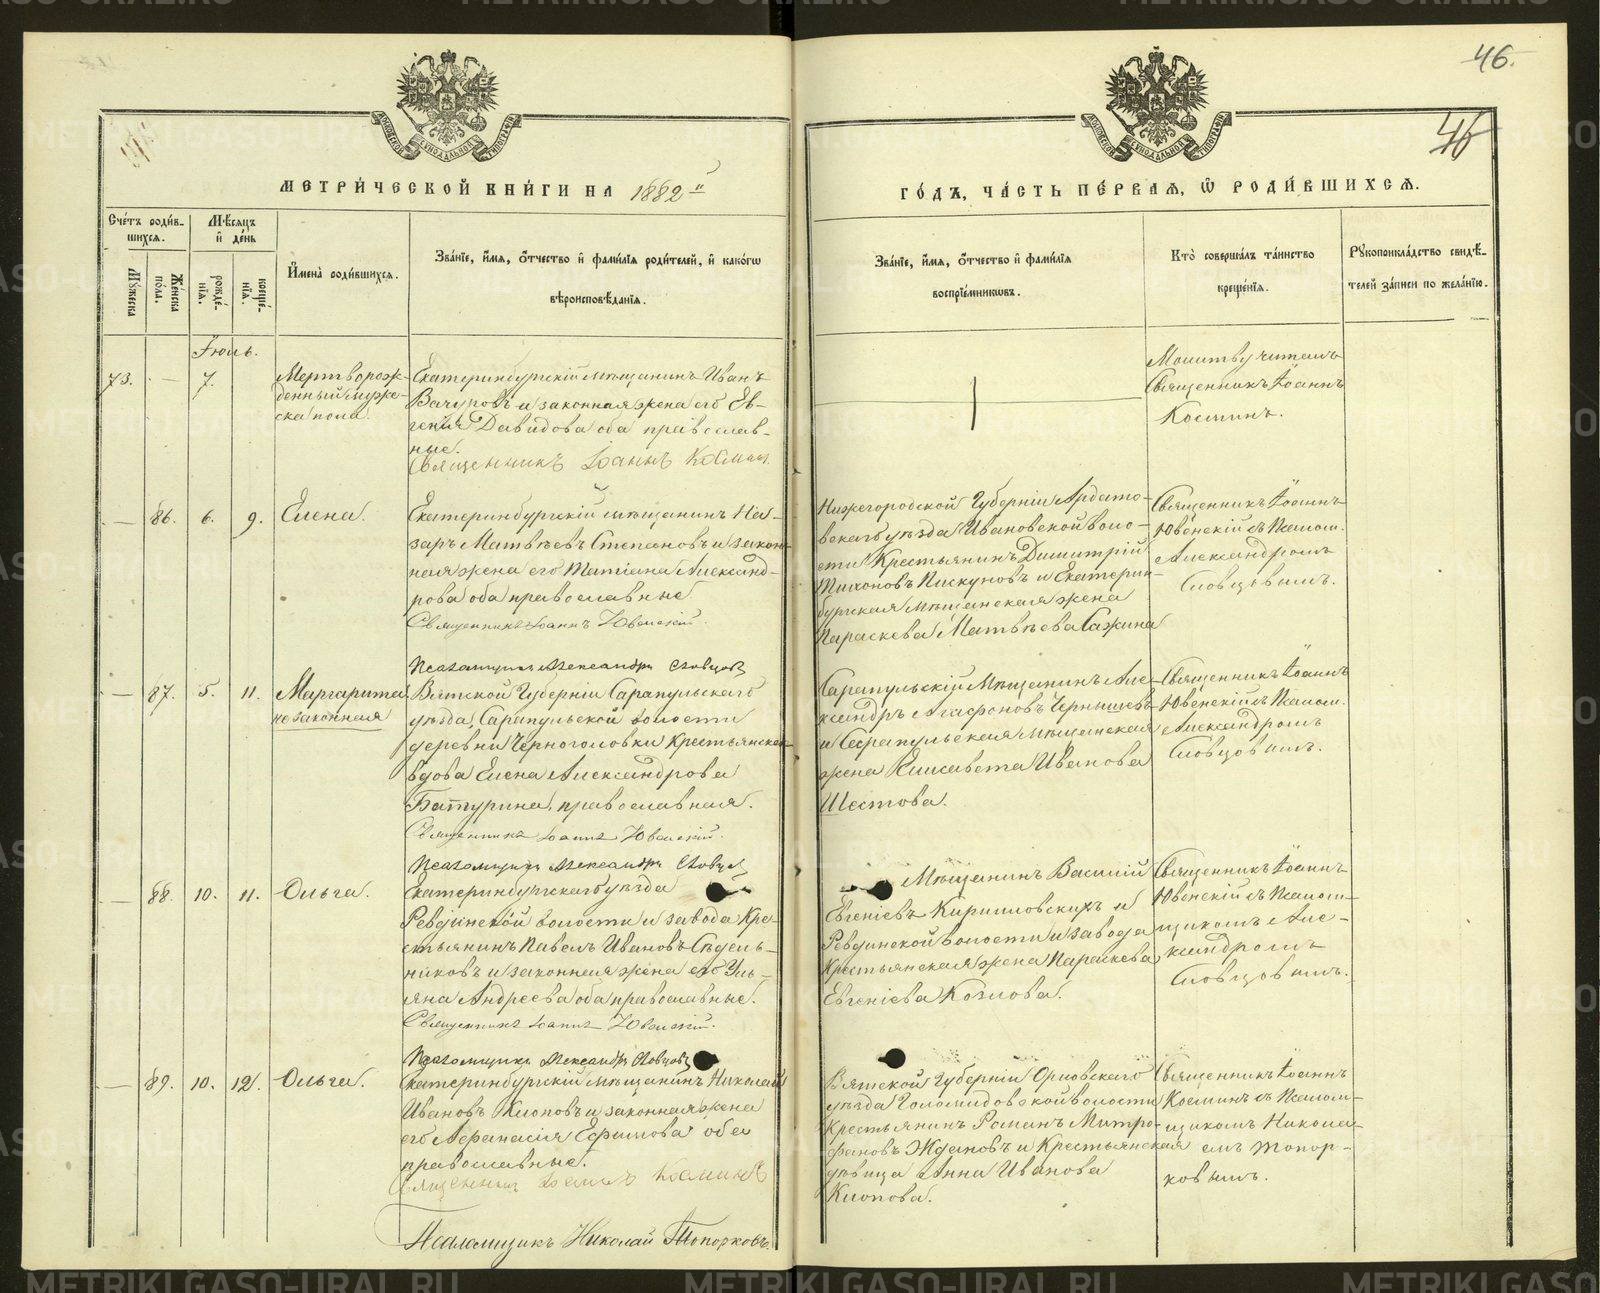 46.
46
МЕТРИ́ЧЕСКОЙ КНИ́ГИ НА 1882й
ГО́ДЪ, ЧА́СТЬ ПЕ́РВАЯ, Ѡ РОДИ́ВШИХСЯ.
Сче́тъ роди́в-
шихся.
Мѣ́сяцъ
и де́нь
Мꙋ́жеска
Же́нска
пола.
рожде́-
нїя.
креще́-
нїя.
И҆мена̀ роди́вшихся.
Зва́нїе, и҆́мя, ѻ҆́тчество и҆ фами́лїя роди́телей, и҆ како́гѡ
вѣроисповѣ́данїя.
Зва́нїе, и҆́мя, ѻ҆́тчество и҆ фами́лїя
воспрїе́мникѡвъ.
Кто̀ соверша́лъ та́инство
креще́нїя.
Рꙋкоприкла́дство свидѣ́-
телей за́писи по жела́нїю.
Іюль.
73. — 7.
Мертворож-
денный муже-
ска пола.
Екатеринбургскій мѣщанинъ Иванъ
Вачуровъ и законная жена его Ев-
генія Давидова оба православ-
ные.
Священникъ Іоаннъ Космин
Молитву читалъ
Священникъ Іоаннъ
Косминъ.
— 86. 6. 9. Елена.
Екатеринбургскій мѣщанинъ На-
заръ Матвѣевъ Степановъ и закон-
ная жена его Татіана Александ-
рова оба православные.
Священникъ Іоаннъ Ювенскій.
Псаломщикъ Александръ Словцовъ
Нижегородской Губерніи Ардато-
вскаго уѣзда Ивановской воло-
сти Крестьянинъ Димитрій
Тихоновъ Пискуновъ и Екатерин-
бургская мѣщанская жена
Параскева Матвѣева Сажина
Священникъ Іоаннъ
Ювенскій съ Псалом.
Александромъ
Словцовымъ.
— 87. 5. 11. Маргарита
незаконная
Вятской Губерніи Сарапульскаго
уѣзда, Сарапульской волости
деревни Черноголовки Крестьянская
вдова Елена Александрова
Батурина, православная.
Священникъ Іоаннъ Ювенскій.
Псаломщикъ Александръ Словцов
Сарапульскій Мѣщанинъ Але-
ксандръ Агафоновъ Чернышевъ
и Сарапульская мѣщанская
жена Елисавета Иванова
Шестова.
Священникъ Іоаннъ
Ювенскій съ Псалом.
Александромъ
Словцовымъ.
— 88. 10. 11. Ольга.
Екатеринбургскаго уѣзда
Ревдинской волости и завода Кре-
стьянинъ Павелъ Ивановъ Сѣдель-
никовъ и законная жена его Уль-
яна Андреева оба православные.
Священникъ Іоаннъ Ювенскій.
Псаломщикъ Александръ Словцовъ
Мѣщанинъ Василій
Евгеніевъ Кирилловскихъ и
Ревдинской волости и завода
Крестьянская жена Параскева
Евгеніева Козлова.
Священникъ Іоаннъ
Ювенскій съ Псалом-
щикомъ Але-
ксандромъ
Словцовымъ.
— 89. 10. 12. Ольга.
Екатеринбургскій мѣщанинъ Николай
Ивановъ Клоповъ и законная жена
его Афанасія Ефимова оба
православные.
Священникъ Іоаннъ Косминъ
Псаломщикъ Николай Топорковъ.
Вятской Губерніи Орловскаго
уѣзда волости
Крестьянинъ Романъ Митро-
фановъ Ждановъ и Крестьянская
дѣвица Анна Иванова
Клопова.
Священникъ Іоаннъ
Косминъ съ Псалом-
щикомъ Никола-
емъ Топор-
ковымъ.
METRIKI.GASO-URAL.RU